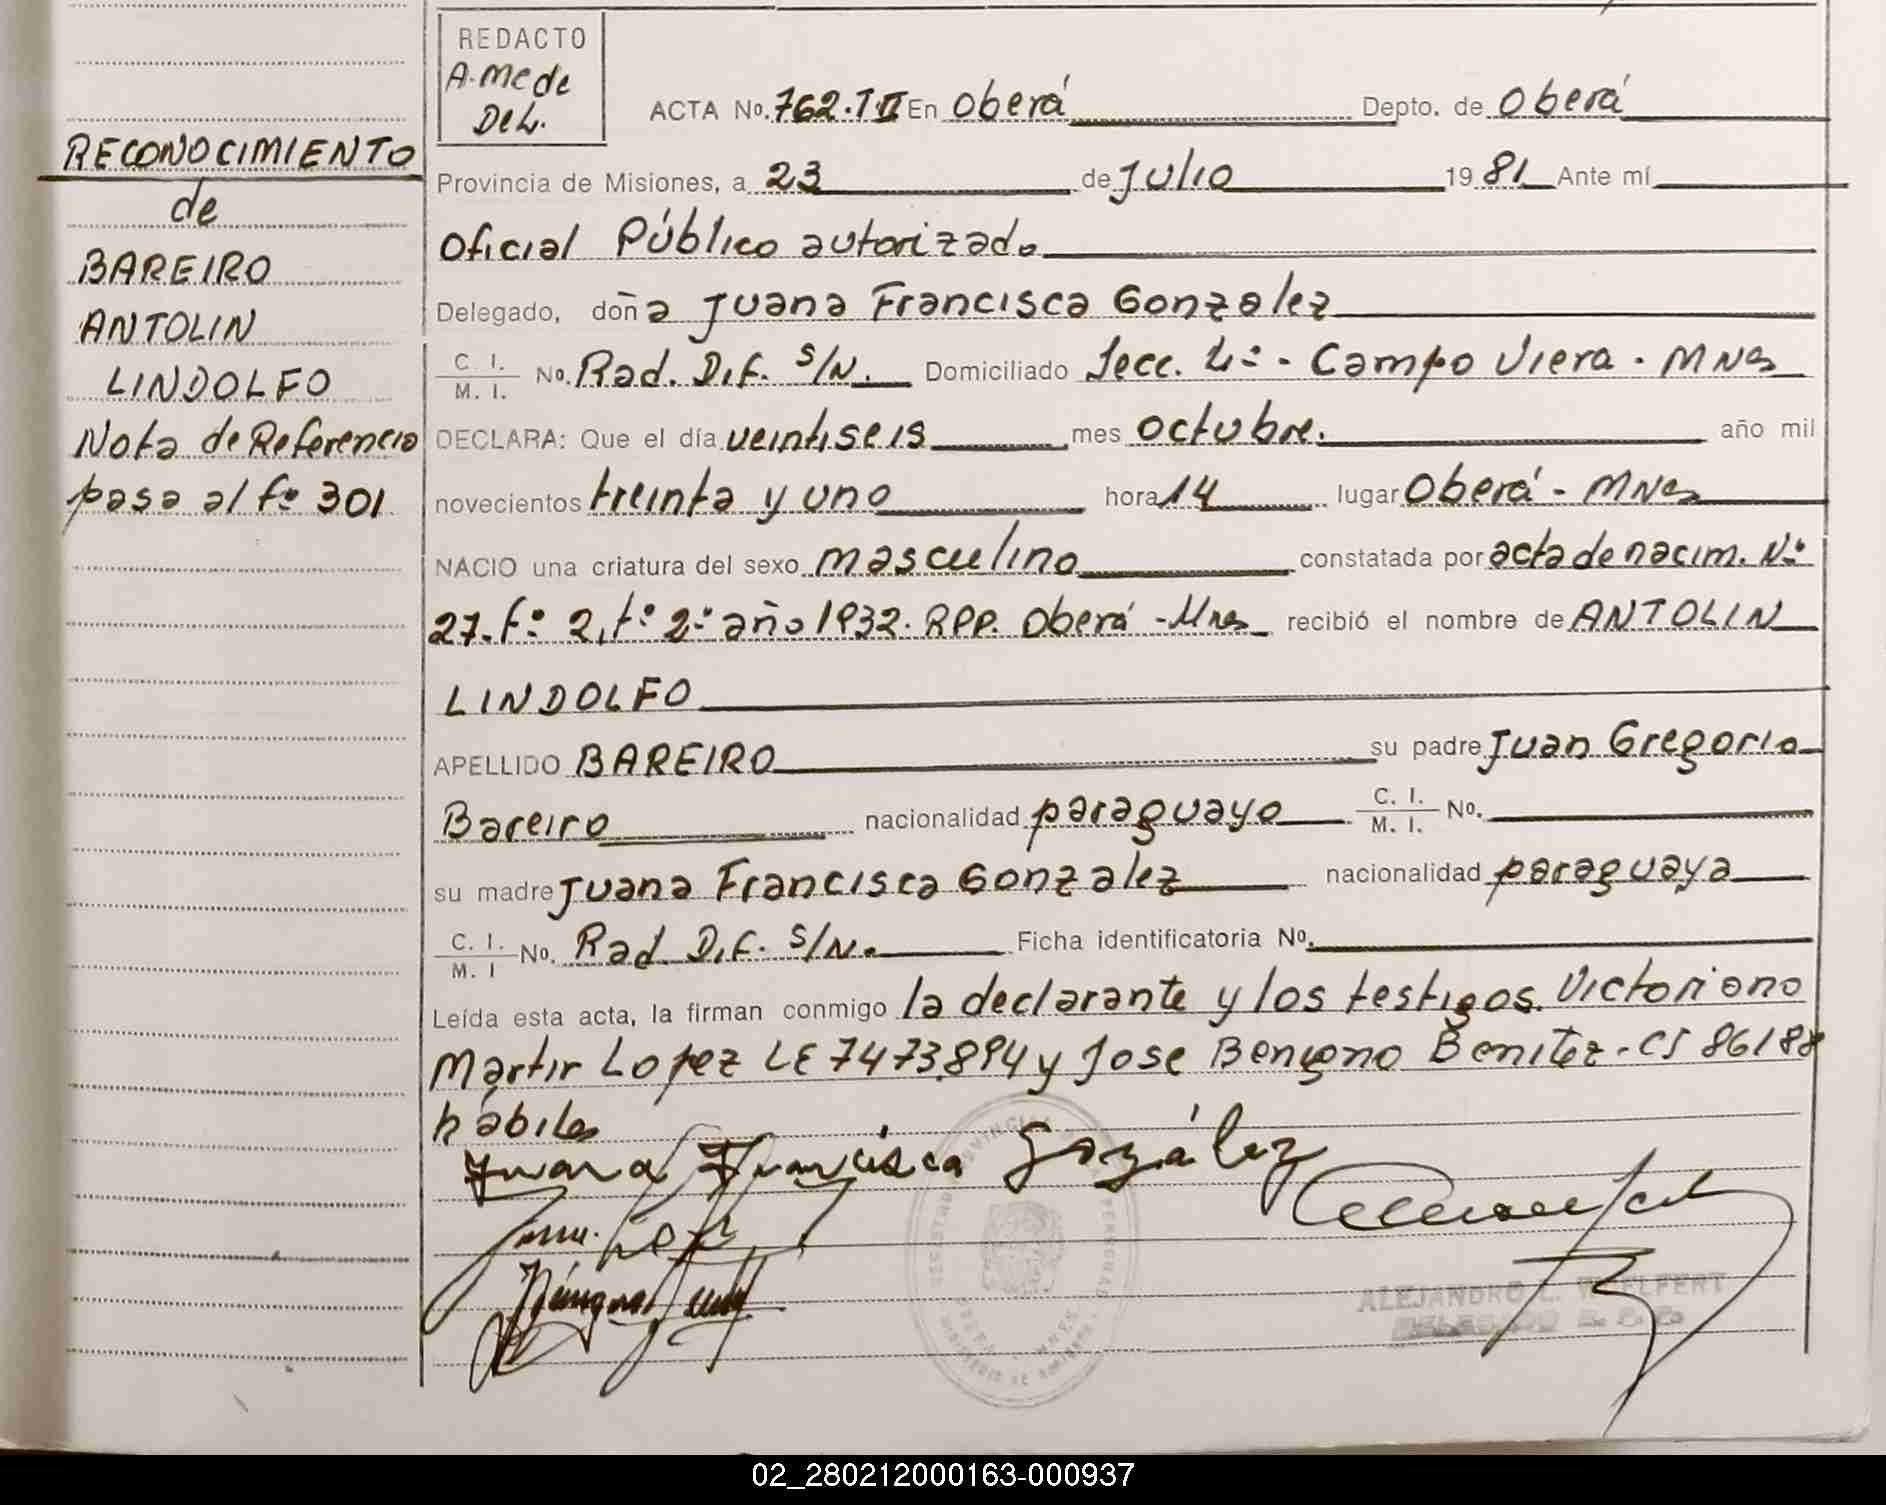 REDACTO
A. Mede
Del.
ACTA No. 762. T II En Oberá Depto. de Oberá
RECONOCIMIENTO
de
BAREIRO
ANTOLIN
LINDOLFO
Nota de Referencia
pasa al fº 301
Provincia de Misiones, a 23 de Julio 1981 Ante mí
Oficial Público autorizado
Delegado, doña Juana Francisca Gonzalez
C. I. / M. I. No. Rad. Dif. S/N. Domiciliado Secc. 4ª - Campo Viera - Mnes
DECLARA: Que el día veintiseis mes octubre. año mil
novecientos treinta y uno hora 14 lugar Oberá - Mnes
NACIO una criatura del sexo masculino constatada por acta de nacim. Nº
27. fº 2, tº 2º año 1932. RPP. Oberá - Mnes recibió el nombre de ANTOLIN
LINDOLFO
APELLIDO BAREIRO su padre Juan Gregorio
Bareiro nacionalidad paraguayo C. I. / M. I. No.
su madre Juana Francisca Gonzalez nacionalidad paraguaya
C. I. / M. I No. Rad. Dif. S/N. Ficha identificatoria No.
Leída esta acta, la firman conmigo la declarante y los testigos. Victoriano
Martir Lopez LE 7473.894 y Jose Benigno Benitez - CI 86188
hábiles
Juana Francisca Gozález
ALEJANDRO L. WOELFERT
02_280212000163-000937